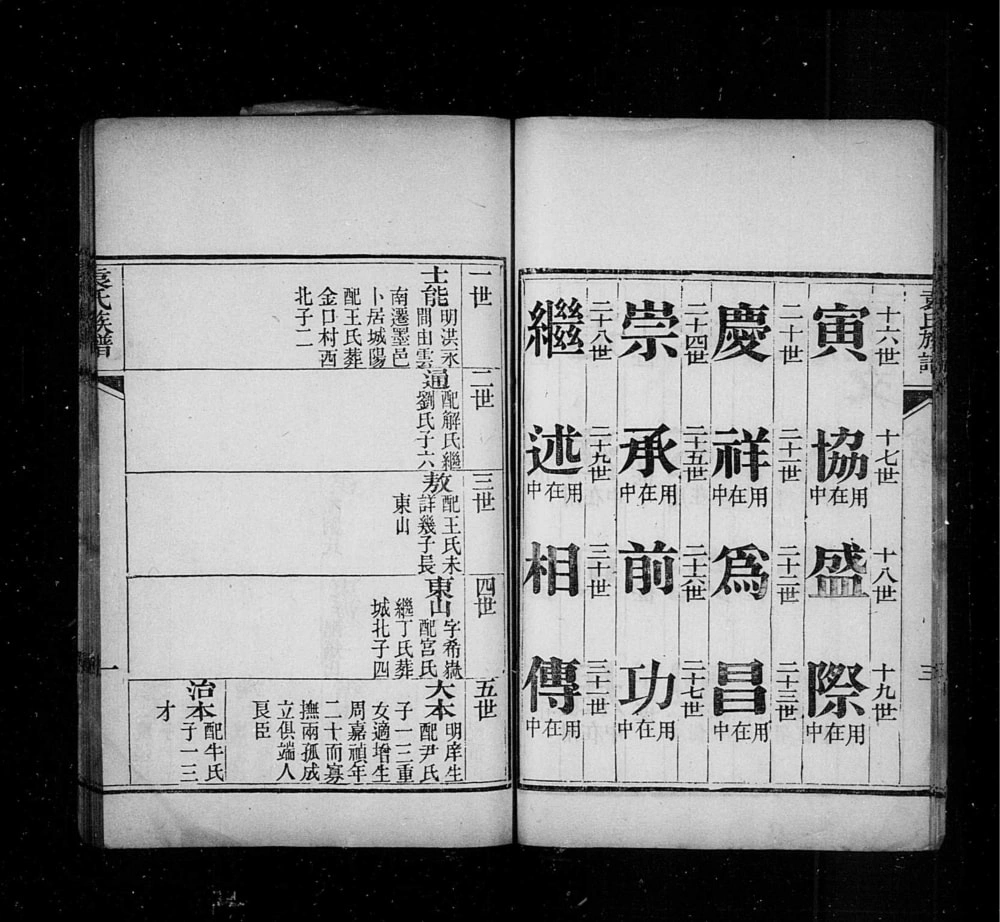 袁氏族譜
三
十六世
寅
十七世
協
用在中
十八世
盛
十九世
際
用在中
二十世
慶
二十一世
祥
用在中
二十二世
爲
二十三世
昌
用在中
二十四世
崇
二十五世
承
用在中
二十六世
前
二十七世
功
用在中
二十八世
繼
二十九世
述
用在中
三十世
相
三十一世
傳
用在中
一世
士能
明洪永
間由雲
南遷墨邑
卜居城陽
配王氏葬
金口村西
北子二
二世
通
配解氏繼
劉氏子六
三世
敖
配王氏未
詳幾子長
東山
四世
東山
字希嶽
配宮氏
繼丁氏葬
城北子四
五世
大本
明庠生
配尹氏
子一三重
女適增生
周嘉禎年
二十而寡
撫兩孤成
立俱端人
良臣
治本
配牛氏
子一三
才
袁氏族譜
一